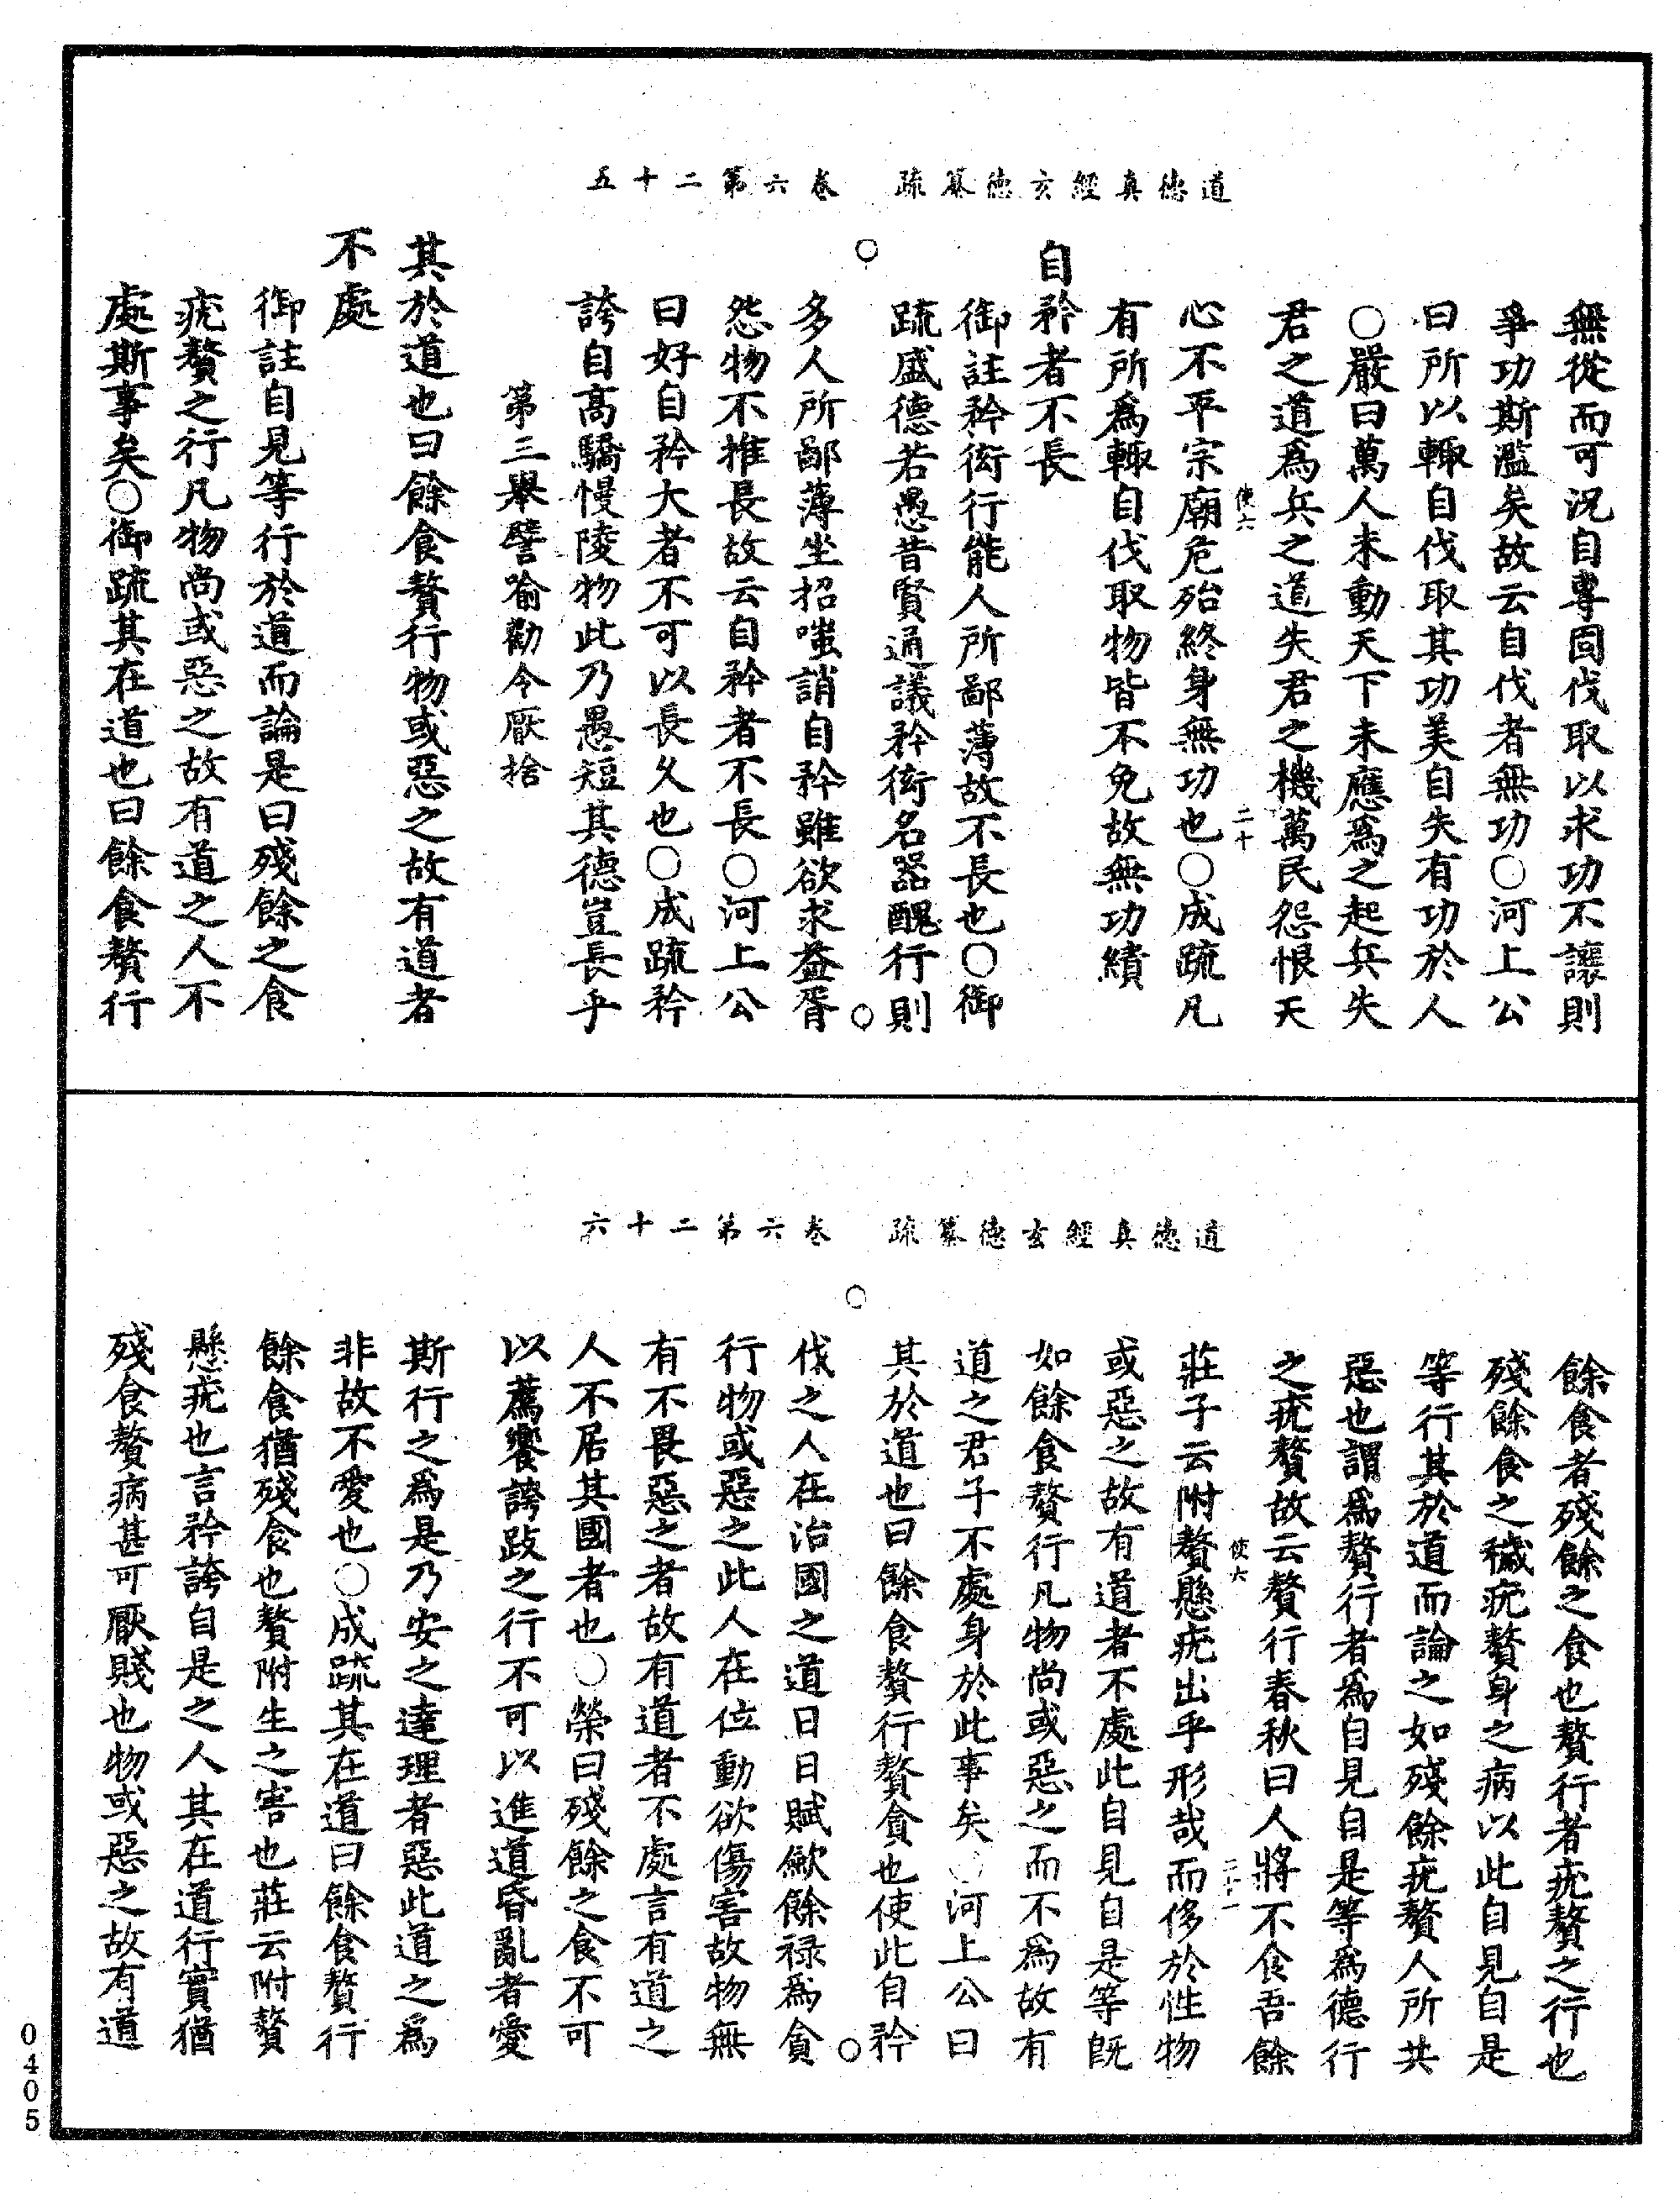 道德真經玄德纂疏　卷六第二十五
無從而可況自專固伐取以求功不讓則
爭功斯濫矣故云自伐者無功○河上公
曰所以輒自伐取其功美自失有功於人
○嚴曰萬人未動天下未應爲之起兵失
君之道爲兵之道失君之機萬民怨恨天
使六　二十
心不平宗廟危殆終身無功也○成疏凡
有所爲輒自伐取物皆不免故無功績
自矜者不長
御註矜衒行能人所鄙薄故不長也○御
疏盛德若愚昔賢通議矜衒名器醜行則
多人所鄙薄坐招嗤誚自矜雖欲求益胥
怨物不推長故云自矜者不長○河上公
曰好自矜大者不可以長久也○成疏矜
誇自高驕慢陵物此乃愚短其德豈長乎
第三舉譬喻勸令厭捨
其於道也曰餘食贅行物或惡之故有道者
不處
御註自見等行於道而論是曰殘餘之食
疣贅之行凡物尚或惡之故有道之人不
處斯事矣○御疏其在道也曰餘食贅行
道德真經玄德纂疏　卷六第二十六
餘食者殘餘之食也贅行者疣贅之行也
殘餘食之穢疣贅身之病以此自見自是
等行其於道而論之如殘餘疣贅人所共
惡也謂爲贅行者爲自見自是等爲德行
之疣贅故云贅行春秋曰人將不食吾餘
使六　二十一
莊子云附贅懸疣出乎形哉而侈於性物
或惡之故有道者不處此自見自是等旣
如餘食贅行凡物尚或惡之而不爲故有
道之君子不處身於此事矣○河上公曰
其於道也曰餘食贅行贅貪也使此自矜
伐之人在治國之道日日賦斂餘禄爲貪
行物或惡之此人在位動欲傷害故物無
有不畏惡之者故有道者不處言有道之
人不居其國者也○榮曰殘餘之食不可
以薦饗誇跂之行不可以進道昏亂者愛
斯行之爲是乃安之達理者惡此道之爲
非故不愛也○成疏其在道曰餘食贅行
餘食猶殘食也贅附生之害也莊云附贅
懸疣也言矜誇自是之人其在道行實猶
殘食贅病甚可厭賤也物或惡之故有道
0405